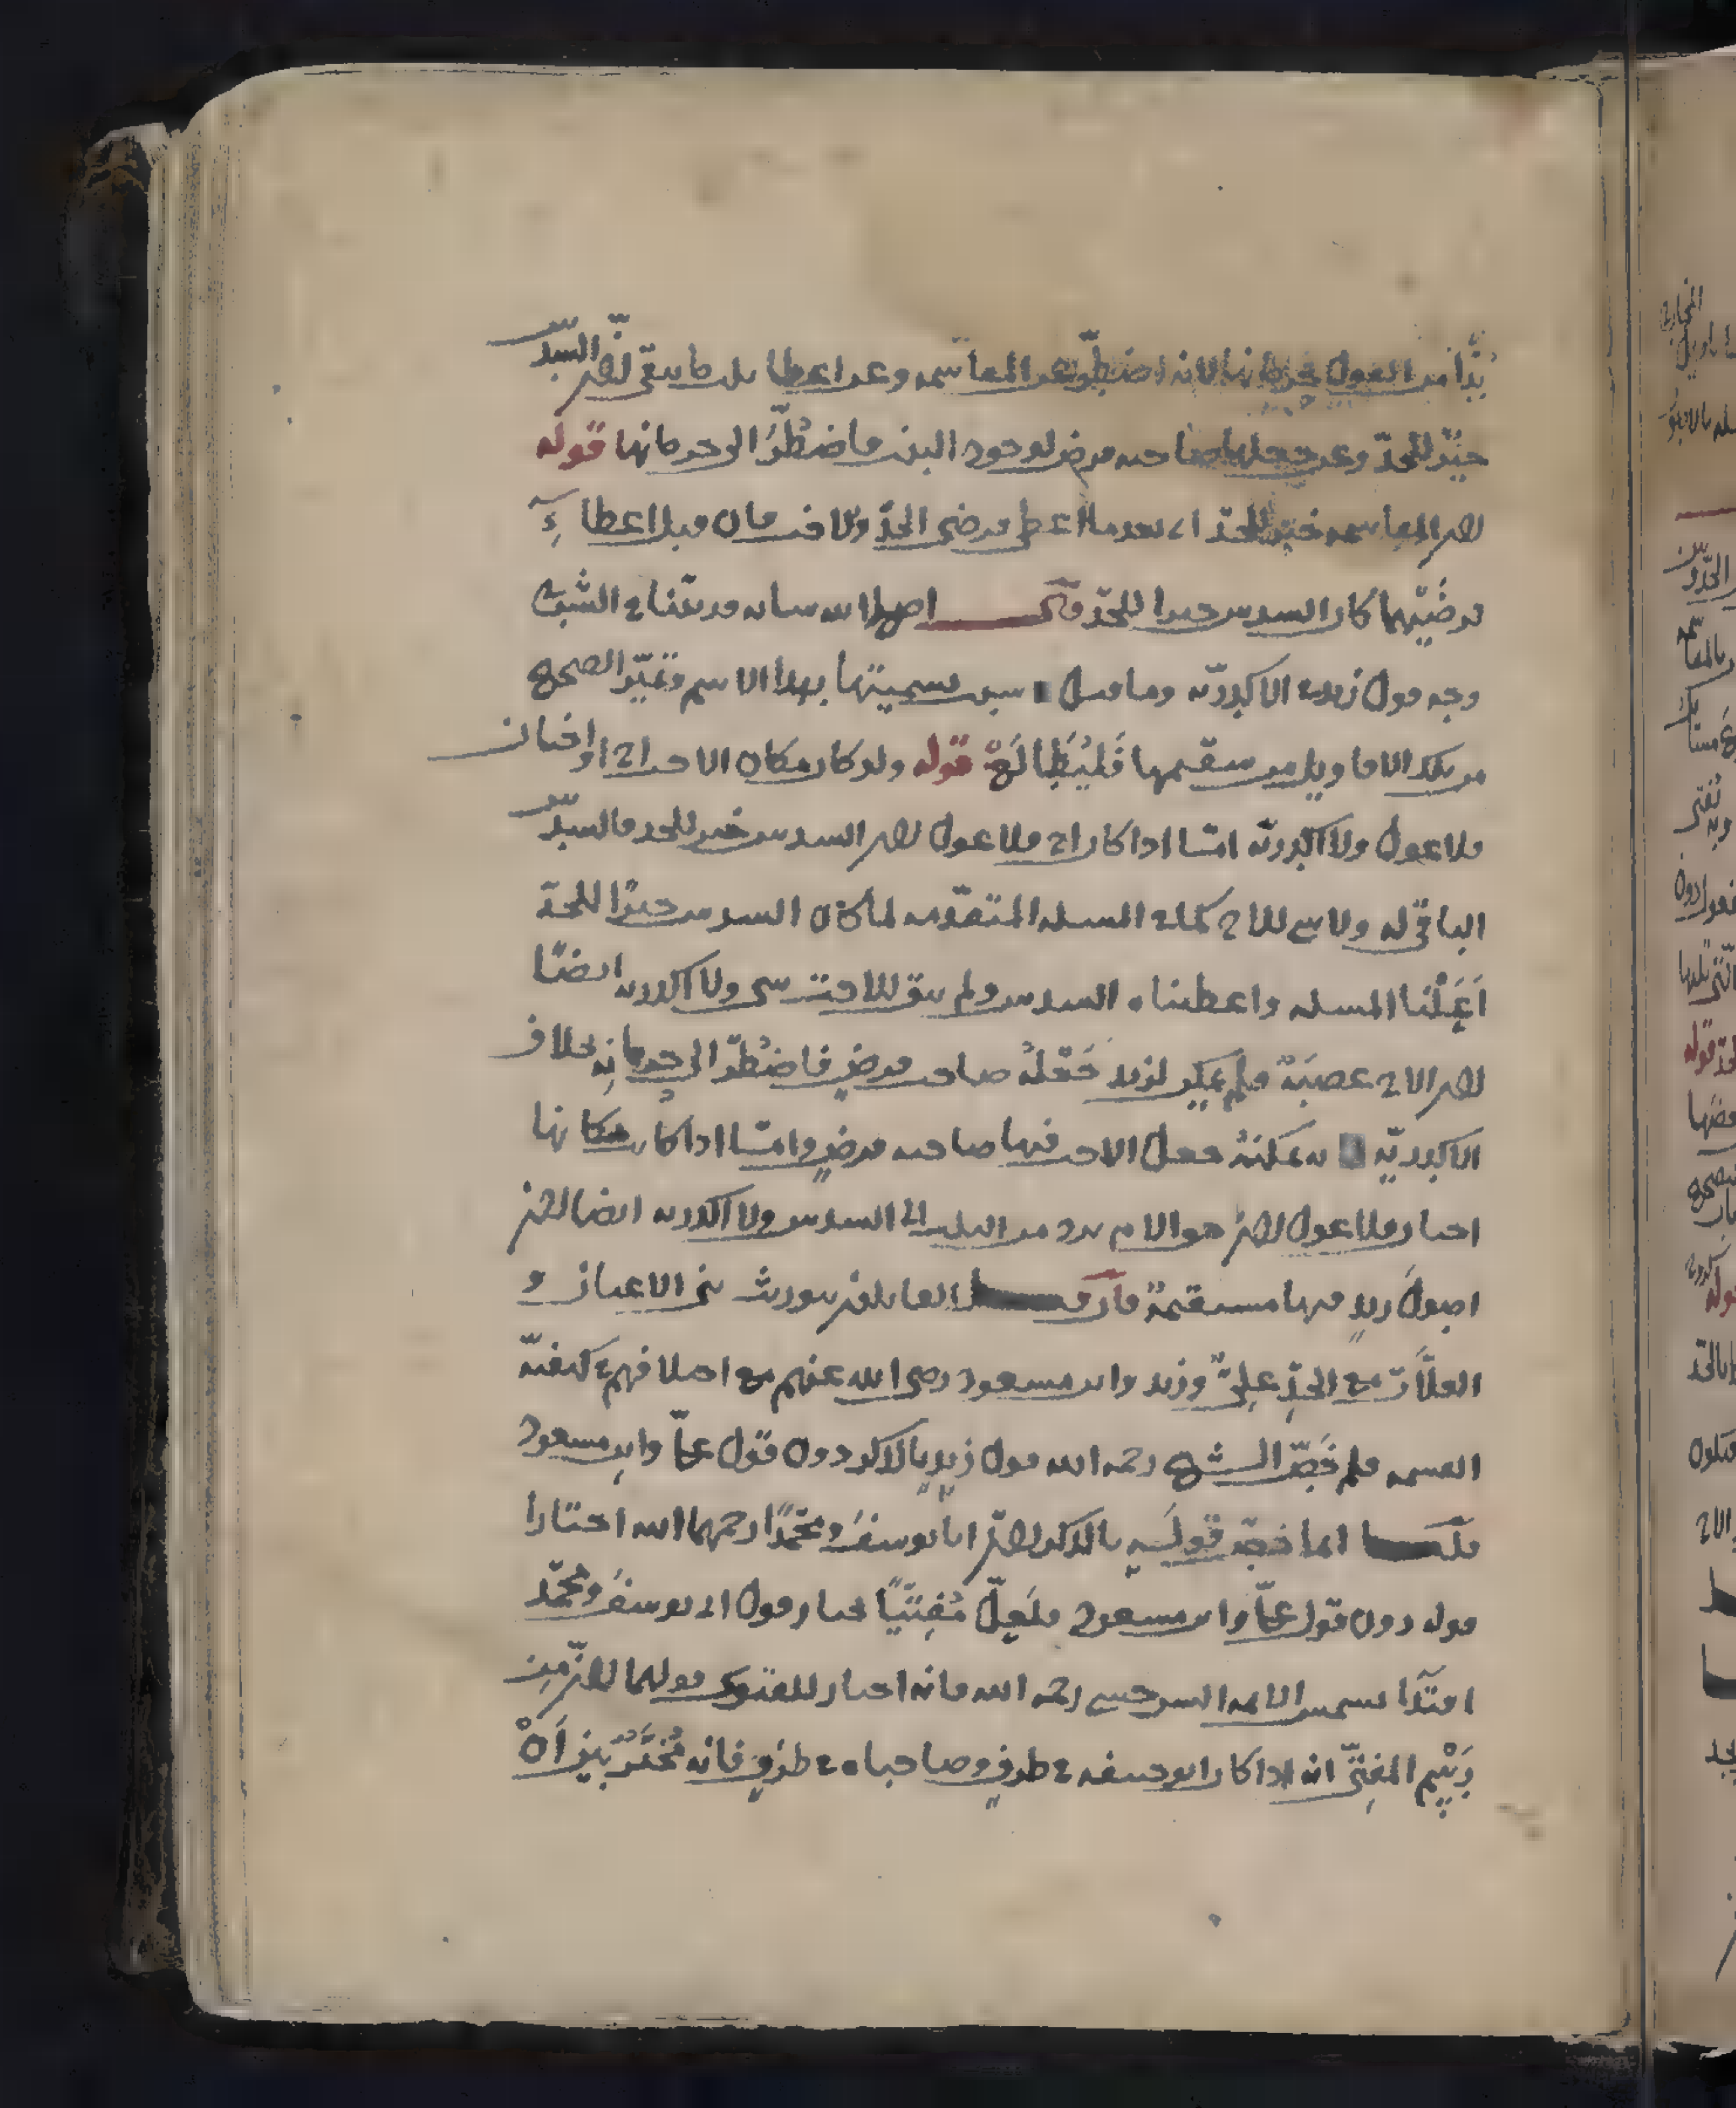 بُدًّا من العول بحرمانها لانه اضطر عن المقاسمة وعن اعطا ثلث ما بقي لان السدس
خيرٌ للجدّ وعن جعلها صاحبه فرض لوجود البنت فاضطُرَّ الى حرمانها قوله
لان المقاسمه خيرٌ للجدّ اى بعد ما اعطى فرضى الجدّ والاخت فان قبل اعطاءِ
فرضَيْهما كان السدس خيرا للجدّ قال اصلح الله سانه قد بيّنا فى الشبكة
وجه قول زيد فى الاكدريّه وما قيل سبب تسميتها بهذا الاسم وتميّز الصحيح
من تلك الاقاويل من سقيمها فَلْيُطالَعْ قوله ولو كان مكان الاخت اخ او اختان
فلا عول ولا اكدريّه امّا اذا كان اخ فلا عول لان السدس خير للجد فالسدس
الباقى له ولا شى للاخ كما فى المسله المتقدّمه لما كان السدس خيرًا للجدّ
اَعَلْنا المسله واعطيناه السدس ولم يبق للاخت شى ولا اكدريه ايضًا
لان الاخ عصبَةٌ فلم يمكن لزيد جَعْلهُ صاحب فرضٍ فاضطُرّ الى حرمانه بخلاف
الاكدريّه لانه يمكنهُ جعل الاخت فيها صاحبه فرضٍ وامّا اذا كان مكانها
اختان فلا عول لانّ حق الام يرد من الثلث الى السدس ولا اكدريه ايضا لانّ
اصولَ زيدٍ فيها مستقيمةٌ فان قيل القايلون بتوريث بنى الاعيان و
العلّات مع الجدِّ علىٌّ وزيد وابن مسعود رضى الله عنهم مع اختلافهم فى كيفيّه
القسمه فلم خَصّ الشيخ رحمه الله قول زيدٍ بالذكر دون قول علىّ وابن مسعود
قلنا انما خصّ قولَه بالذكر لانّ ابا يوسفَ ومحمّدًا رحمهما الله اختارا
قوله دون قول علىّ وابن مسعود فلعلّ مُفتيًا يختار قول ابى يوسفَ ومحمّد
اقتدًا بشمس الائمه السرخسى رحمه الله فانه اختار للفتوى قولهما لانّ من
رَسْم المفتى انه اذا كان ابو حنيفه فى طرفٍ وصاحباه فى طرفٍ فانه مُخَيَّرٌ بين اَنْ